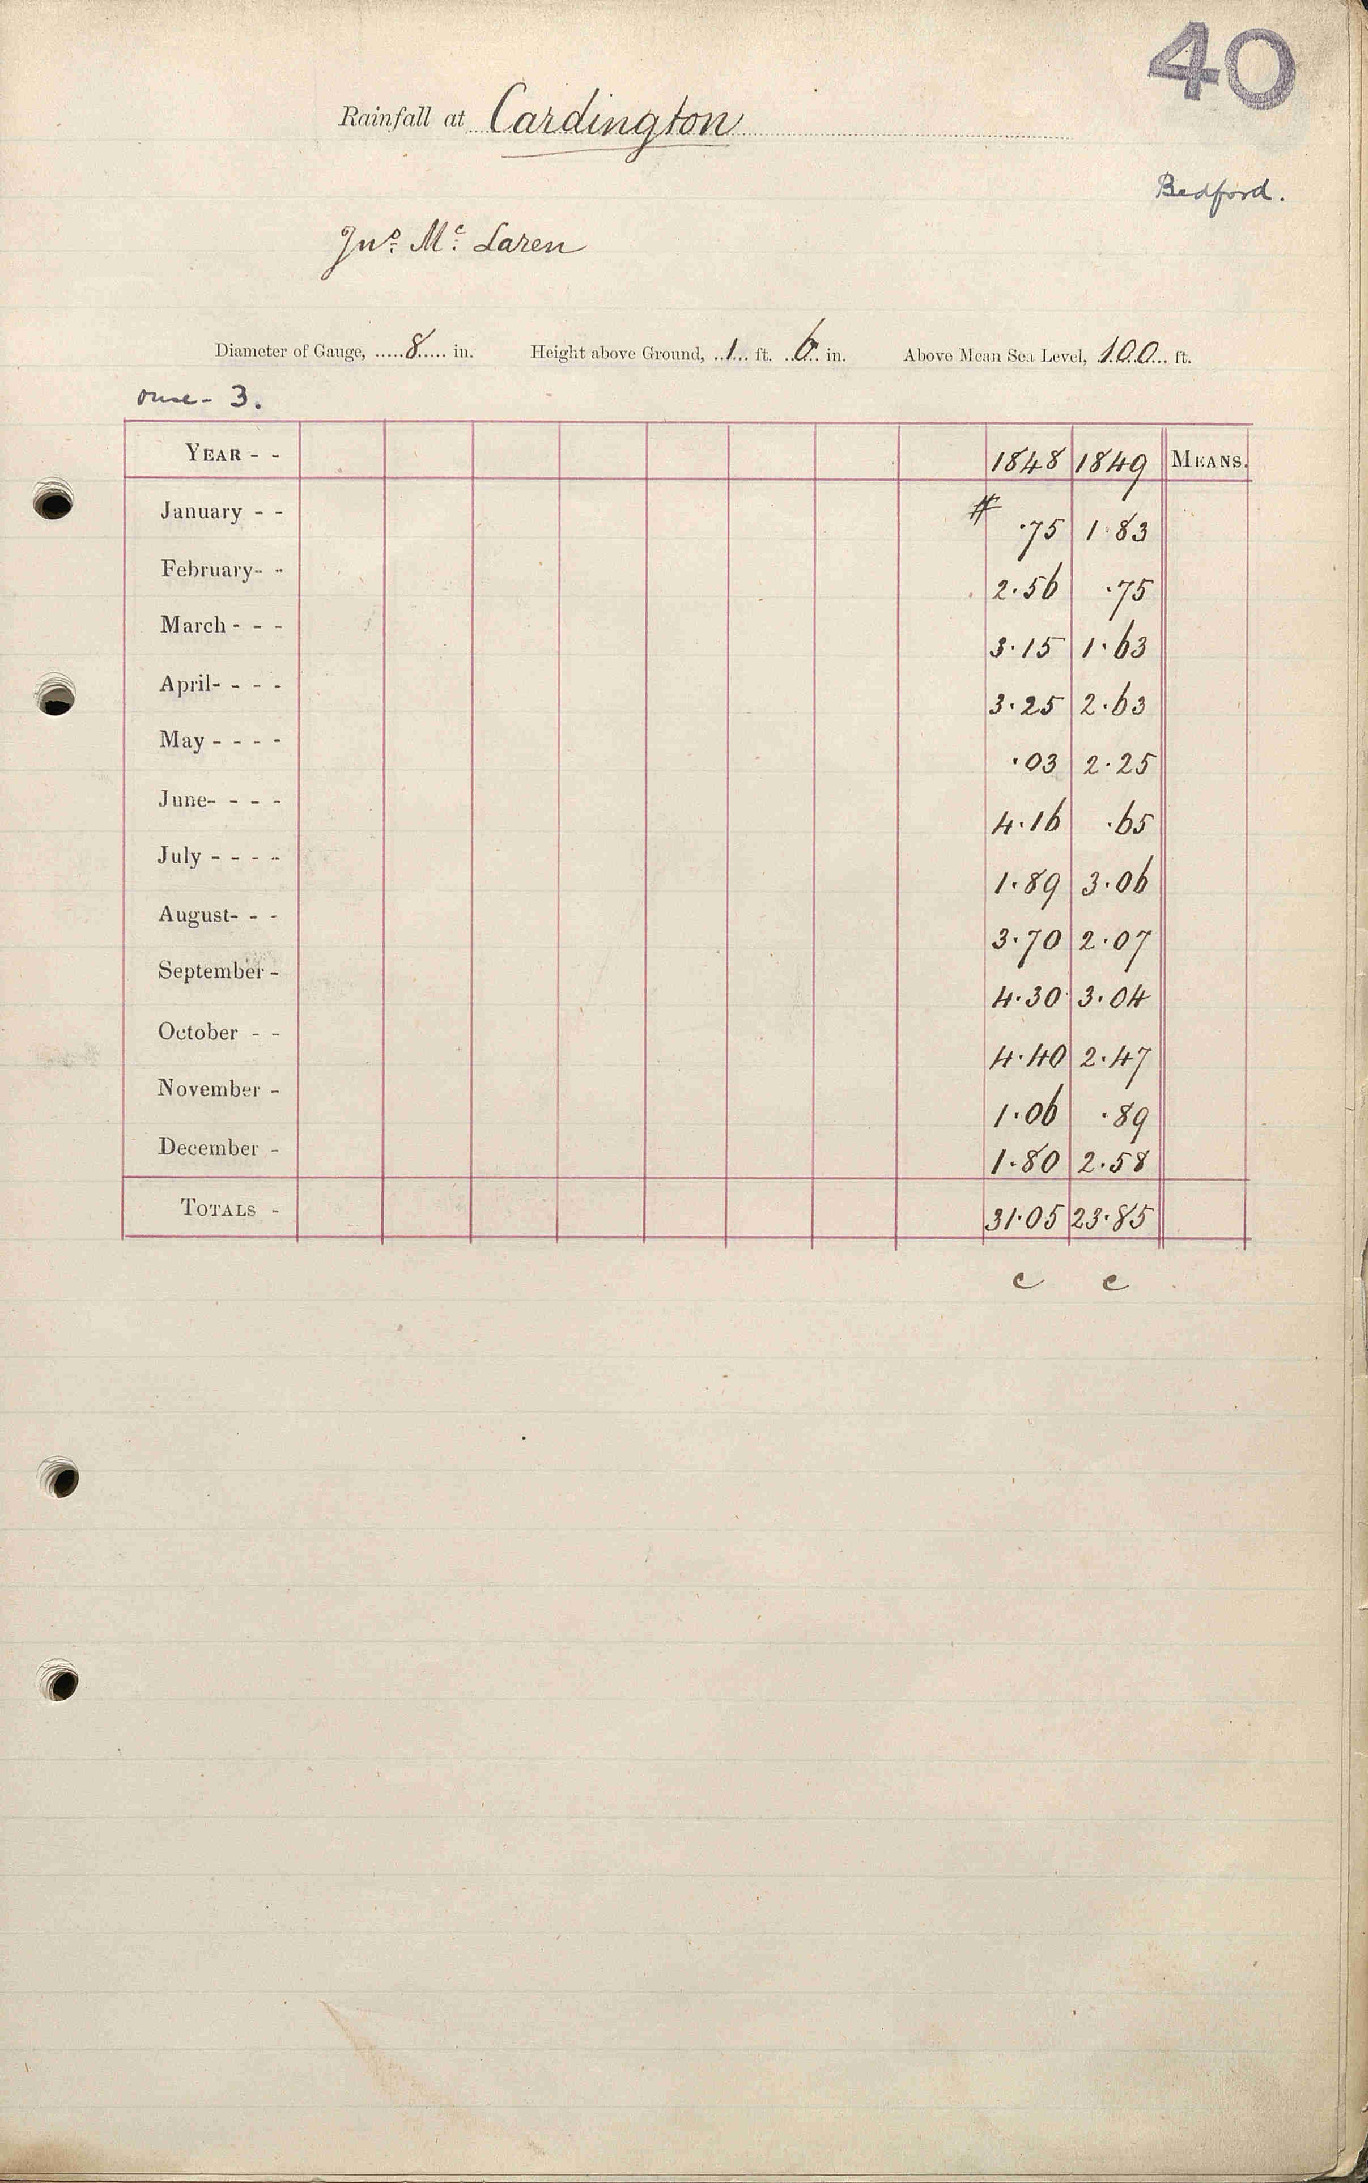 40
Rainfall at Cardington
Bedford.
Jno. Mc. Laren
Diameter of Gauge, .....8..... in. Height above Ground, ..1... ft. ..6.. in. Above Mean Sea Level, 100... ft.
Ouse - 3.
YEAR - - 1848 1849 MEANS.
January - - # .75 1.83
February- - 2.56 .75
March - - - 3.15 1.63
April- - - - 3.25 2.63
May - - - - .03 2.25
June- - - - 4.16 .65
July - - - - 1.89 3.06
August- - - 3.70 2.07
September - 4.30 3.04
October - - 4.40 2.47
November - 1.06 .89
December - 1.80 2.58
TOTALS - 31.05 23.85
c c